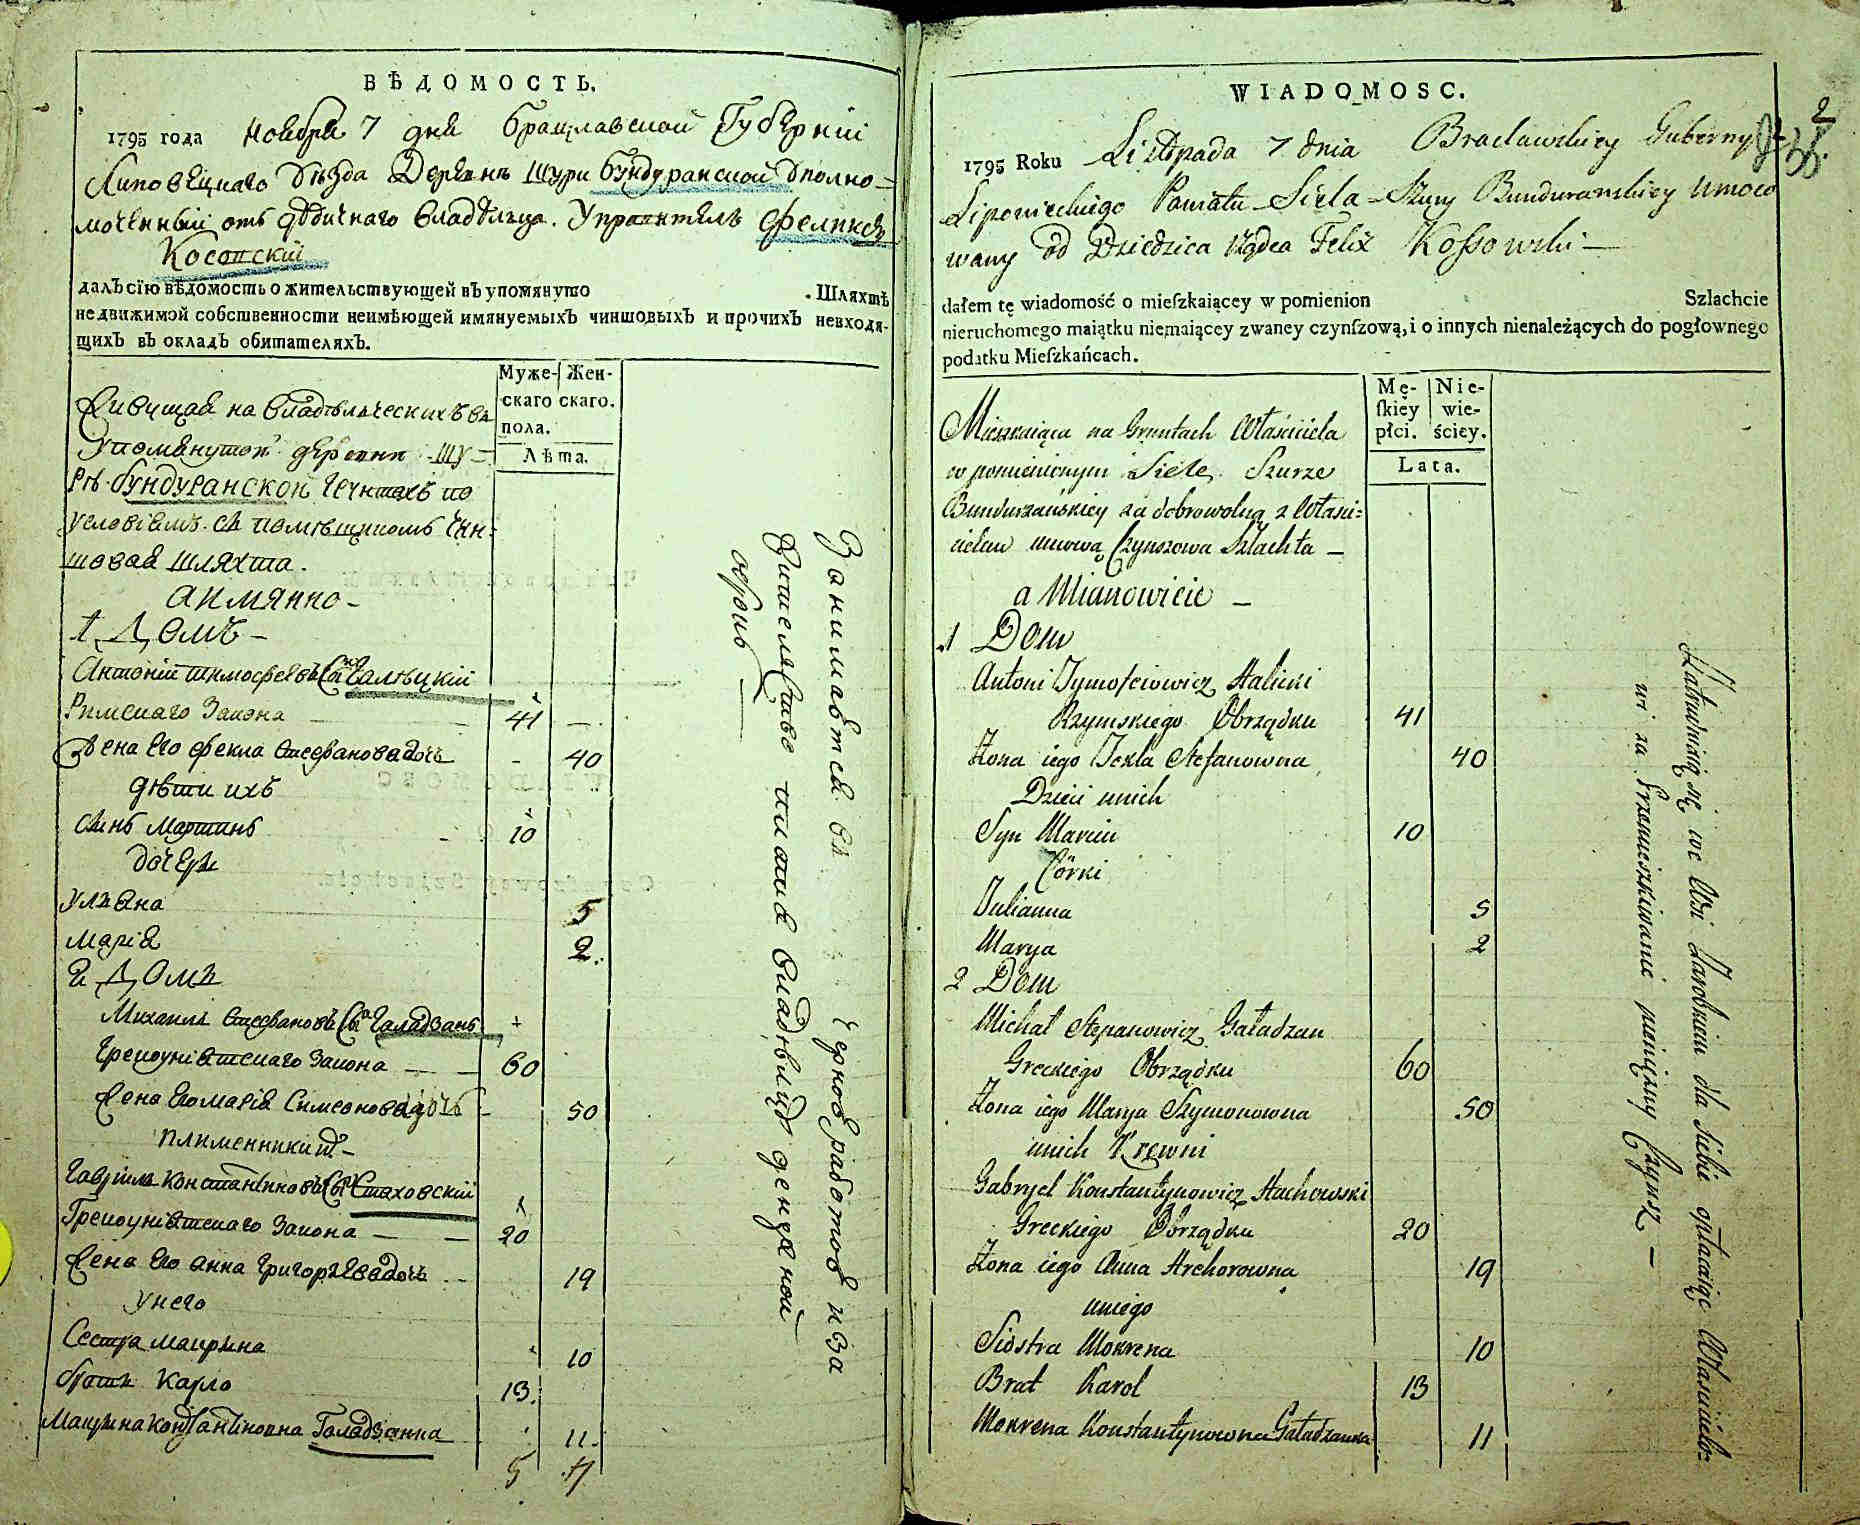 ВѢДОМОСТЬ.
1795 года Ноября 7 дня Брацлавской Губерніи
Липовецкаго Уѣзда Деревни Щури Бундуранской Уполно=
моченный отъ дѣдичнаго владѣльца. Управитель Феликсъ
Косовский
далъ сію вѣдомость о жительствующей въ упомянуто . Шляхтѣ
недвижимой собственности неимѣющей имянуемыхъ чиншовыхъ и прочихъ невходя-
щихъ въ окладъ обитателяхъ.
Муже- Жен-
скаго скаго.
пола.
Лѣта.
Живущая на владѣльческихъ въ
Упомянутой деревни Щу-
рѣ Бундуранской грунтахъ по
условіямъ съ помѣщикомъ чин-
шовая шляхта.
а имянно -
1 Домъ -
Антоній Тимофеевъ Сынъ Галѣцкий
Римскаго Закона 41 —
Жена его Фекла Стефанова дочь - 40
дѣти ихъ
сынъ Мартинъ 10
дочери
Ульяна 5
Марія 2.
2 Домъ
Михаилъ Стефановъ Сынъ Галадзанъ
Грекоуніятскаго Закона — 60
Жена его Марія Симеонова дочь - 50
племенники
Гавріилъ Константиновъ Сынъ Стаховский
Грекоуніятскаго Закона — 20
Жена его Анна Григорьева дочь 19
у него
Сестра Макрына 10
братъ Карло 13.
Макрына Константиновна Галадзанка 11.
5 7
Занимается въ черной работой и за
владѣльцу денежной
оброкъ —
WIADOMOSC.
2
1795 Roku Listopada 7 dnia Bracławskiey Guberny
Lipowieckiego Powiatu Sieła Szury Bunduranskiey Umoco
wany od Dziedzica Rządca Felix Kossowski —
dałem tę wiadomość o mieſzkaiącey w pomienion Szlachcie
nieruchomego maiątku niemaiącey zwaney czynſzową, i o innych nienależących do pogłownego
podatku Mieſzkańcach.
Mę- Nie-
ſkiey wie-
płci. ściey.
Lata.
Mieszkaiąca na Gruntach Właściciela
w pomienionym Siele Szurze
Bundurańskiey za dobrowolną z Własci=
cielem umową Czynszowa Szlachta —
a Mianowicie —
1 Dom
Antoni Tymofeiowicz Halicki
Rzymskiego Obrządku 41
Żona iego Tekla Stefanowna 40
Dzieci unich
Syn Marcin 10
Córki
Julianna 5
Marya 2
2 Dom
Michał Stepanowicz Gaładzan
Greckiego Obrządku 60
Żona iego Marya Szymonowna 50
unich Krewni
Gabryel Konstantynowicz Stachowski
Greckiego Obrządku 20
Żona iego Anna Hrehorowna 19
uniego
Siostra Mokrena 10
Brat Karol 13
Mokrena Konstantynowna Gaładzanka 11
Zatrudniaią się we Wsi Zarobkiem dla siebie opłacaiąc Właścicielo-
wi za Przemieszkiwanie pieniężny Czynsz —